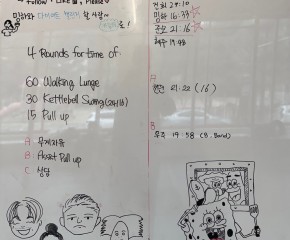 Follow, Like 꾹, Please ♥
4 Rounds for time of
60 Walking Lunge
30 Kettlebell Swing (24/16)
15 Pull up
A 무게자유
B Assist Pull up
C 상담
건희 24:10
민하 16:33
21:16
19:48
A
21:22 (16)
B
19:58 (B. Band)